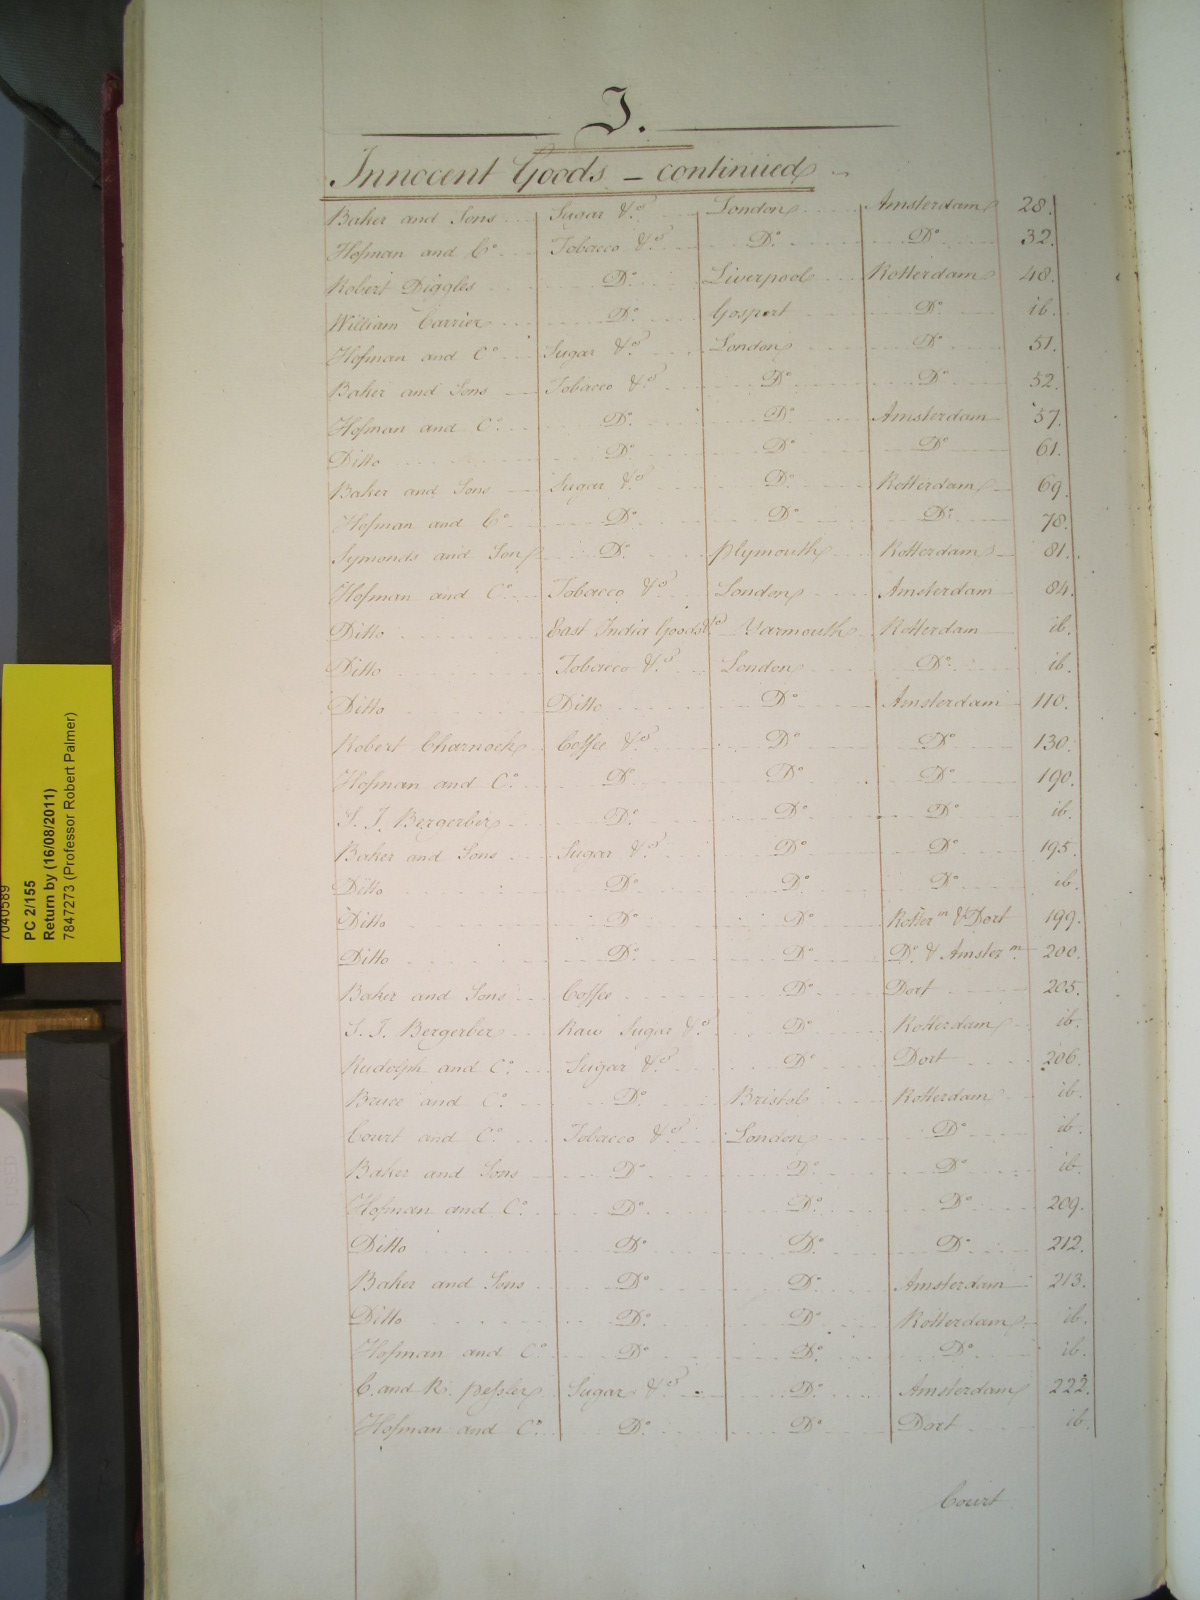 I.
Innocent Goods – continued
Baker and Sons Sugar &c. London Amsterdam 28.
Hofman and Co. Tobacco &c. Do. Do. 32.
Robert Diggles Do. Liverpool Rotterdam 48.
William Carrier Do. Gosport Do. ib.
Hofman and Co. Sugar &c. London Do. 51.
Baker and Sons Tobacco &c. Do. Do. 52.
Hofman and Co. Do. Do. Amsterdam 57.
Ditto Do. Do. Do. 61.
Baker and Sons Sugar &c. Do. Rotterdam 69.
Hofman and Co. Do. Do. Do. 78.
Symonds and Son Do. Plymouth Rotterdam 81.
Hofman and Co. Tobacco &c. London Amsterdam 84.
Ditto East India Goods &c. Yarmouth Rotterdam ib.
Ditto Tobacco &c. London Do. ib.
Ditto Ditto Do. Amsterdam 110.
Robert Charnock Coffee &c. Do. Do. 130.
Hofman and Co. Do. Do. Do. 190.
S. J. Bergerber Do. Do. Do. ib.
Baker and Sons Sugar &c. Do. Do. 195.
Ditto Do. Do. Do. ib.
Ditto Do. Do. Rotterm & Dort 199.
Ditto Do. Do. Do. & Amsterm. 200.
Baker and Sons Coffee Do. Dort 205.
S. J. Bergerber Raw Sugar &c. Do. Rotterdam ib.
Rudolph and Co. Sugar &c. Do. Dort 206.
Bruce and Co. Do. Bristol Rotterdam ib.
Court and Co. Tobacco &c. London Do. ib.
Baker and Sons Do. Do. Do. ib.
Hofman and Co. Do. Do. Do. 209.
Ditto Do. Do. Do. 212.
Baker and Sons Do. Do. Amsterdam 213.
Ditto Do. Do. Rotterdam ib.
Hofman and Co. Do. Do. Do. ib.
C. and R. Pessler Sugar &c. Do. Amsterdam 222.
Hofman and Co. Do. Do. Dort ib.
Court
7040589
PC 2/155
Return by (16/08/2011)
7847273 (Professor Robert Palmer)